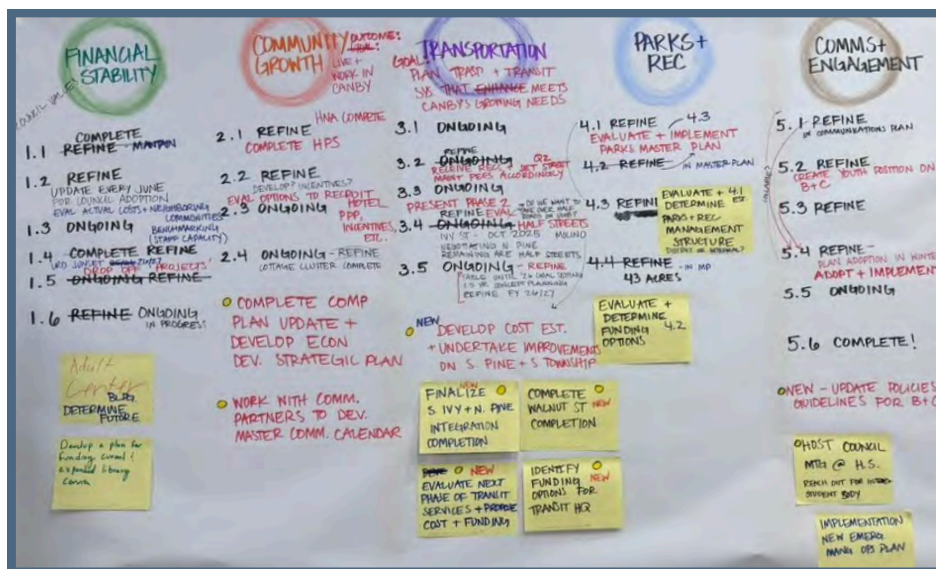 FINANCIAL
STABILITY
COUNCIL VALUES
COMPLETE
1.1 REFINE - MAINTAIN
1.2 REFINE
UPDATE EVERY JUNE
FOR COUNCIL ADOPTION
EVAL ACTUAL COSTS + NEIGHBORING
COMMUNITIES
1.3 ONGOING BENCHMARKING
(STAFF CAPACITY)
1.4 COMPLETE REFINE
URD SUNSET 26/27
DROP OFF PROJECTS
1.5 ONGOING REFINE
1.6 REFINE ONGOING
IN PROGRESS
Adult
Center
BLDG.
DETERMINE
FUTURE
Develop a plan for
funding current &
expanded library
COMMUNITY
GROWTH
OUTCOME:
GOAL:
LIVE +
WORK IN
CANBY
HNA COMPLETE
2.1 REFINE
COMPLETE HPS
2.2 REFINE
DEVELOP? INCENTIVES?
EVAL OPTIONS TO RECRUIT
HOTEL
2.3 ONGOING PPP,
INCENTIVES,
ETC.
2.4 ONGOING - REFINE
COTTAGE CLUSTER COMPLETE
COMPLETE COMP
PLAN UPDATE +
DEVELOP ECON
DEV. STRATEGIC PLAN
WORK WITH COMM.
PARTNERS TO DEV.
MASTER COMM. CALENDAR
TRANSPORTATION
GOAL:
PLAN TRASP + TRANSIT
SYS THAT ENHANCE MEETS
CANBY'S GROWING NEEDS
3.1 ONGOING
REFINE
3.2 ONGOING Q2
RECEIVE RECS, SET STREET
MAINT FEES ACCORDINGLY
3.3 ONGOING
PRESENT PHASE 2
REFINE EVAL
3.4 ONGOING HALF STREETS
IVY ST - OCT 2025
NEGOTIATING N PINE
REMAINING ARE HALF STREETS
3.5 ONGOING - REFINE
TABLE UNTIL '26 GOAL SETTING
CONCEPT PLANNING
REFINE FY 26/27
NEW
DEVELOP COST EST.
+ UNDERTAKE IMPROVEMENTS
ON S. PINE + S TOWNSHIP
NEW
FINALIZE
S. IVY + N. PINE
INTEGRATION
COMPLETION
COMPLETE
WALNUT ST NEW
COMPLETION
NEW
EVALUATE NEXT
PHASE OF TRANSIT
SERVICES + PROPOSE
COST + FUNDING
IDENTIFY
FUNDING NEW
OPTIONS FOR
TRANSIT HQ
PARKS +
REC
4.1 REFINE 4.3
EVALUATE + IMPLEMENT
PARKS MASTER PLAN
4.2 REFINE - IN MASTER PLAN
4.3 REFINE
EVALUATE + 4.1
DETERMINE
PARKS + REC
MANAGEMENT
STRUCTURE
4.4 REFINE - IN MP
43 ACRES
EVALUATE +
DETERMINE
FUNDING 4.2
OPTIONS
COMMS +
ENGAGEMENT
5.1 REFINE
IN COMMUNICATIONS PLAN
5.2 REFINE
CREATE YOUTH POSITION ON
B+C
5.3 REFINE
5.4 REFINE -
PLAN ADOPTION IN WINTER
ADOPT + IMPLEMENT
5.5 ONGOING
5.6 COMPLETE!
NEW - UPDATE POLICIES
GUIDELINES FOR B+C
HOST COUNCIL
MTG @ H.S.
REACH OUT FOR
STUDENT BODY
IMPLEMENTATION
NEW EMERG
MANG OPS PLAN